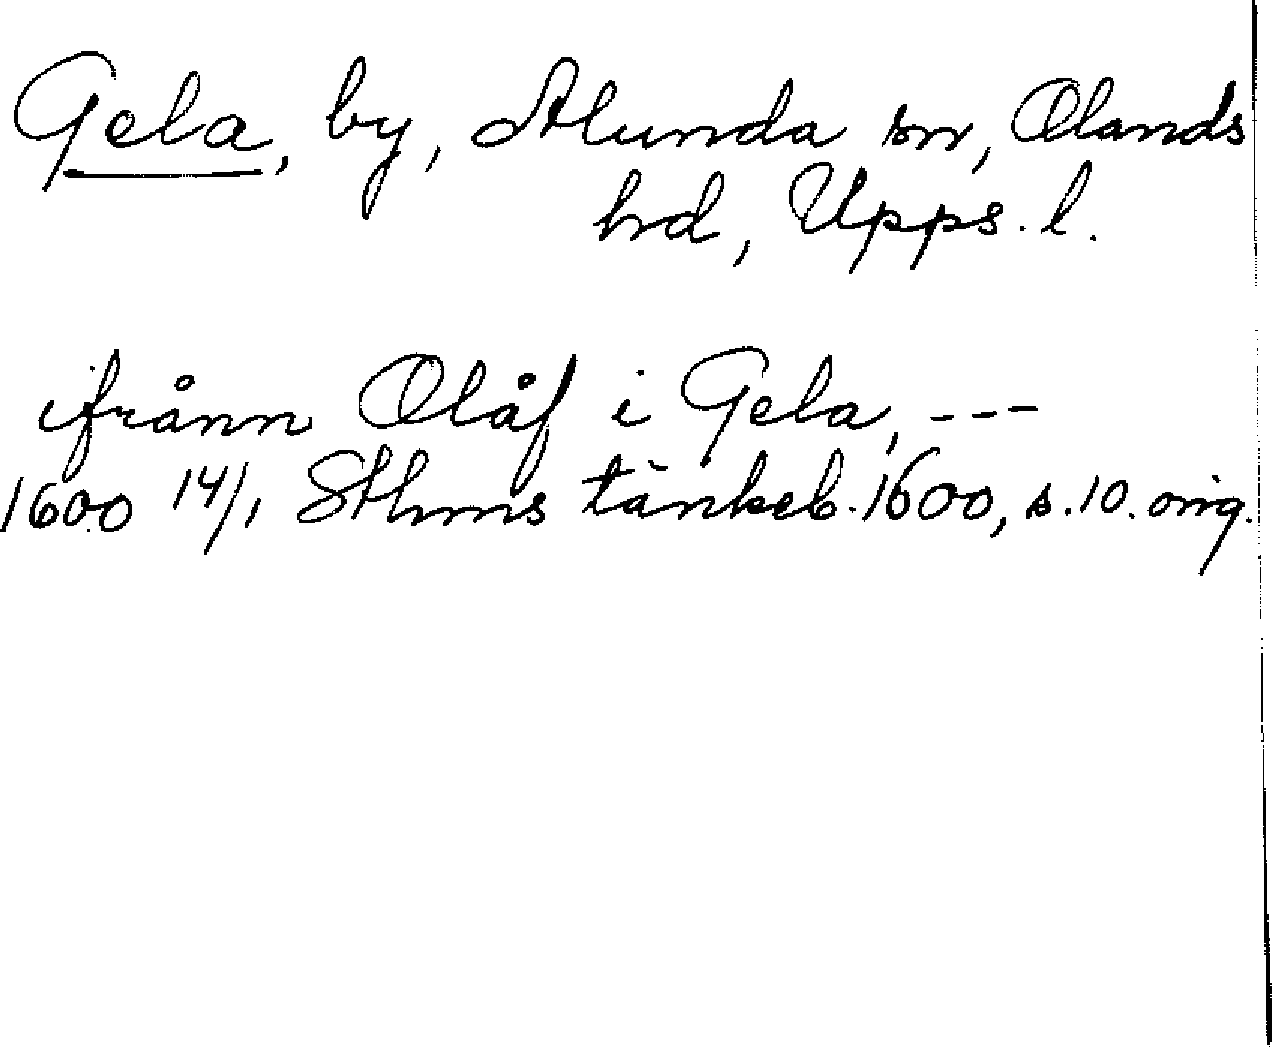 Gela, by, Alunda sn, Olands
hd, Upps. l.
ifrånn Olåf i Gela, ---
1600 14/1 Sthms tänkeb. 1600, s. 10. orig.